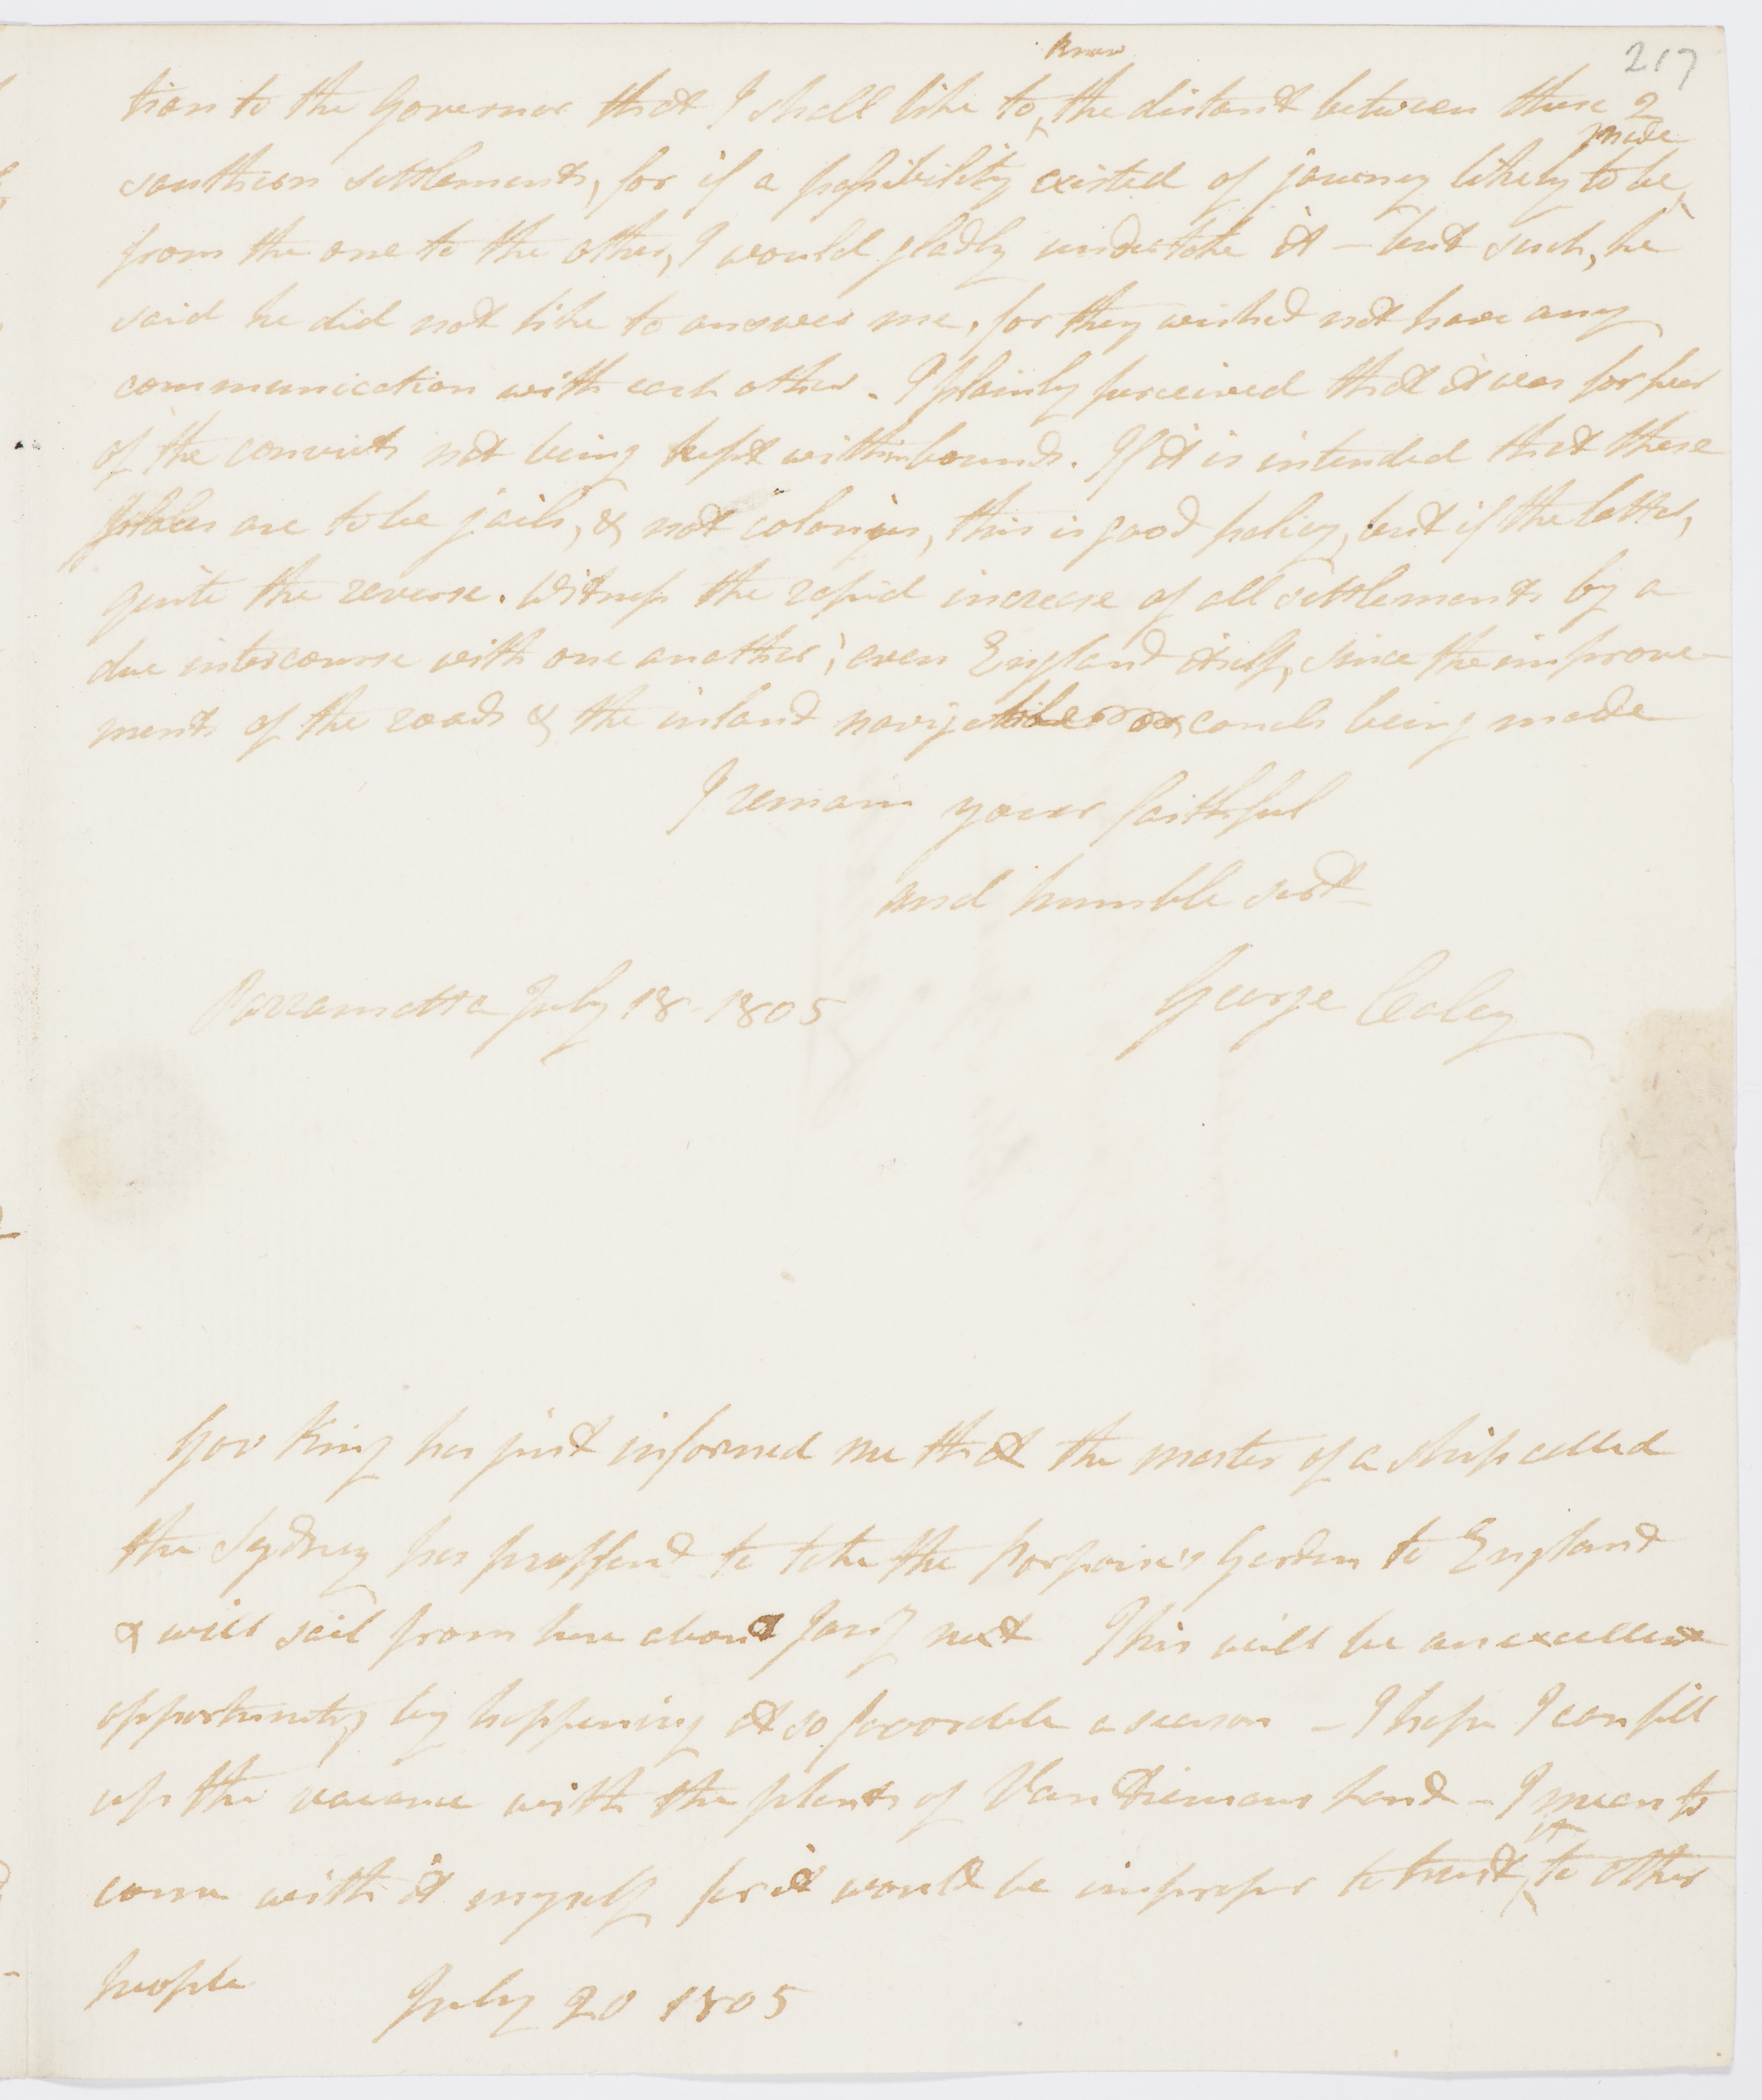 217
know
tion to the Governor that I shall like to the distant between these 2
made
southern settlements, for if a possibility existed of journey likely to be
from the one to the other, I would gladly undertake it – but such, he
said he did not like to answer me, for they wished not have any
communication with each other. I plainly perceived that it was for fear
of the convicts not being kept within bounds. If it is intended that these
places are to be jails, & not colonies, this is good policy, but if the latter,
quite the reverse. Witness the rapid increase of all settlements by a
due intercourse with one another; even England itself, since the improve-
ments of the roads & the inland canals being made
I remain your faithful
and humble servt
Parramatta July 18 1805
George Caley
Govr King has just informed me that the master of a ship called
the Sydney has proffered to take the Porpoise's Garden to England
& will sail from here about Jany next This will be an excellent
opportunity by happening at so favorable a season – I hope I can fill
up the vacance with the plants of Van Diemans Land – I mean to
it
come with it myself for it would be improper to trust to other
people
July 20 1805